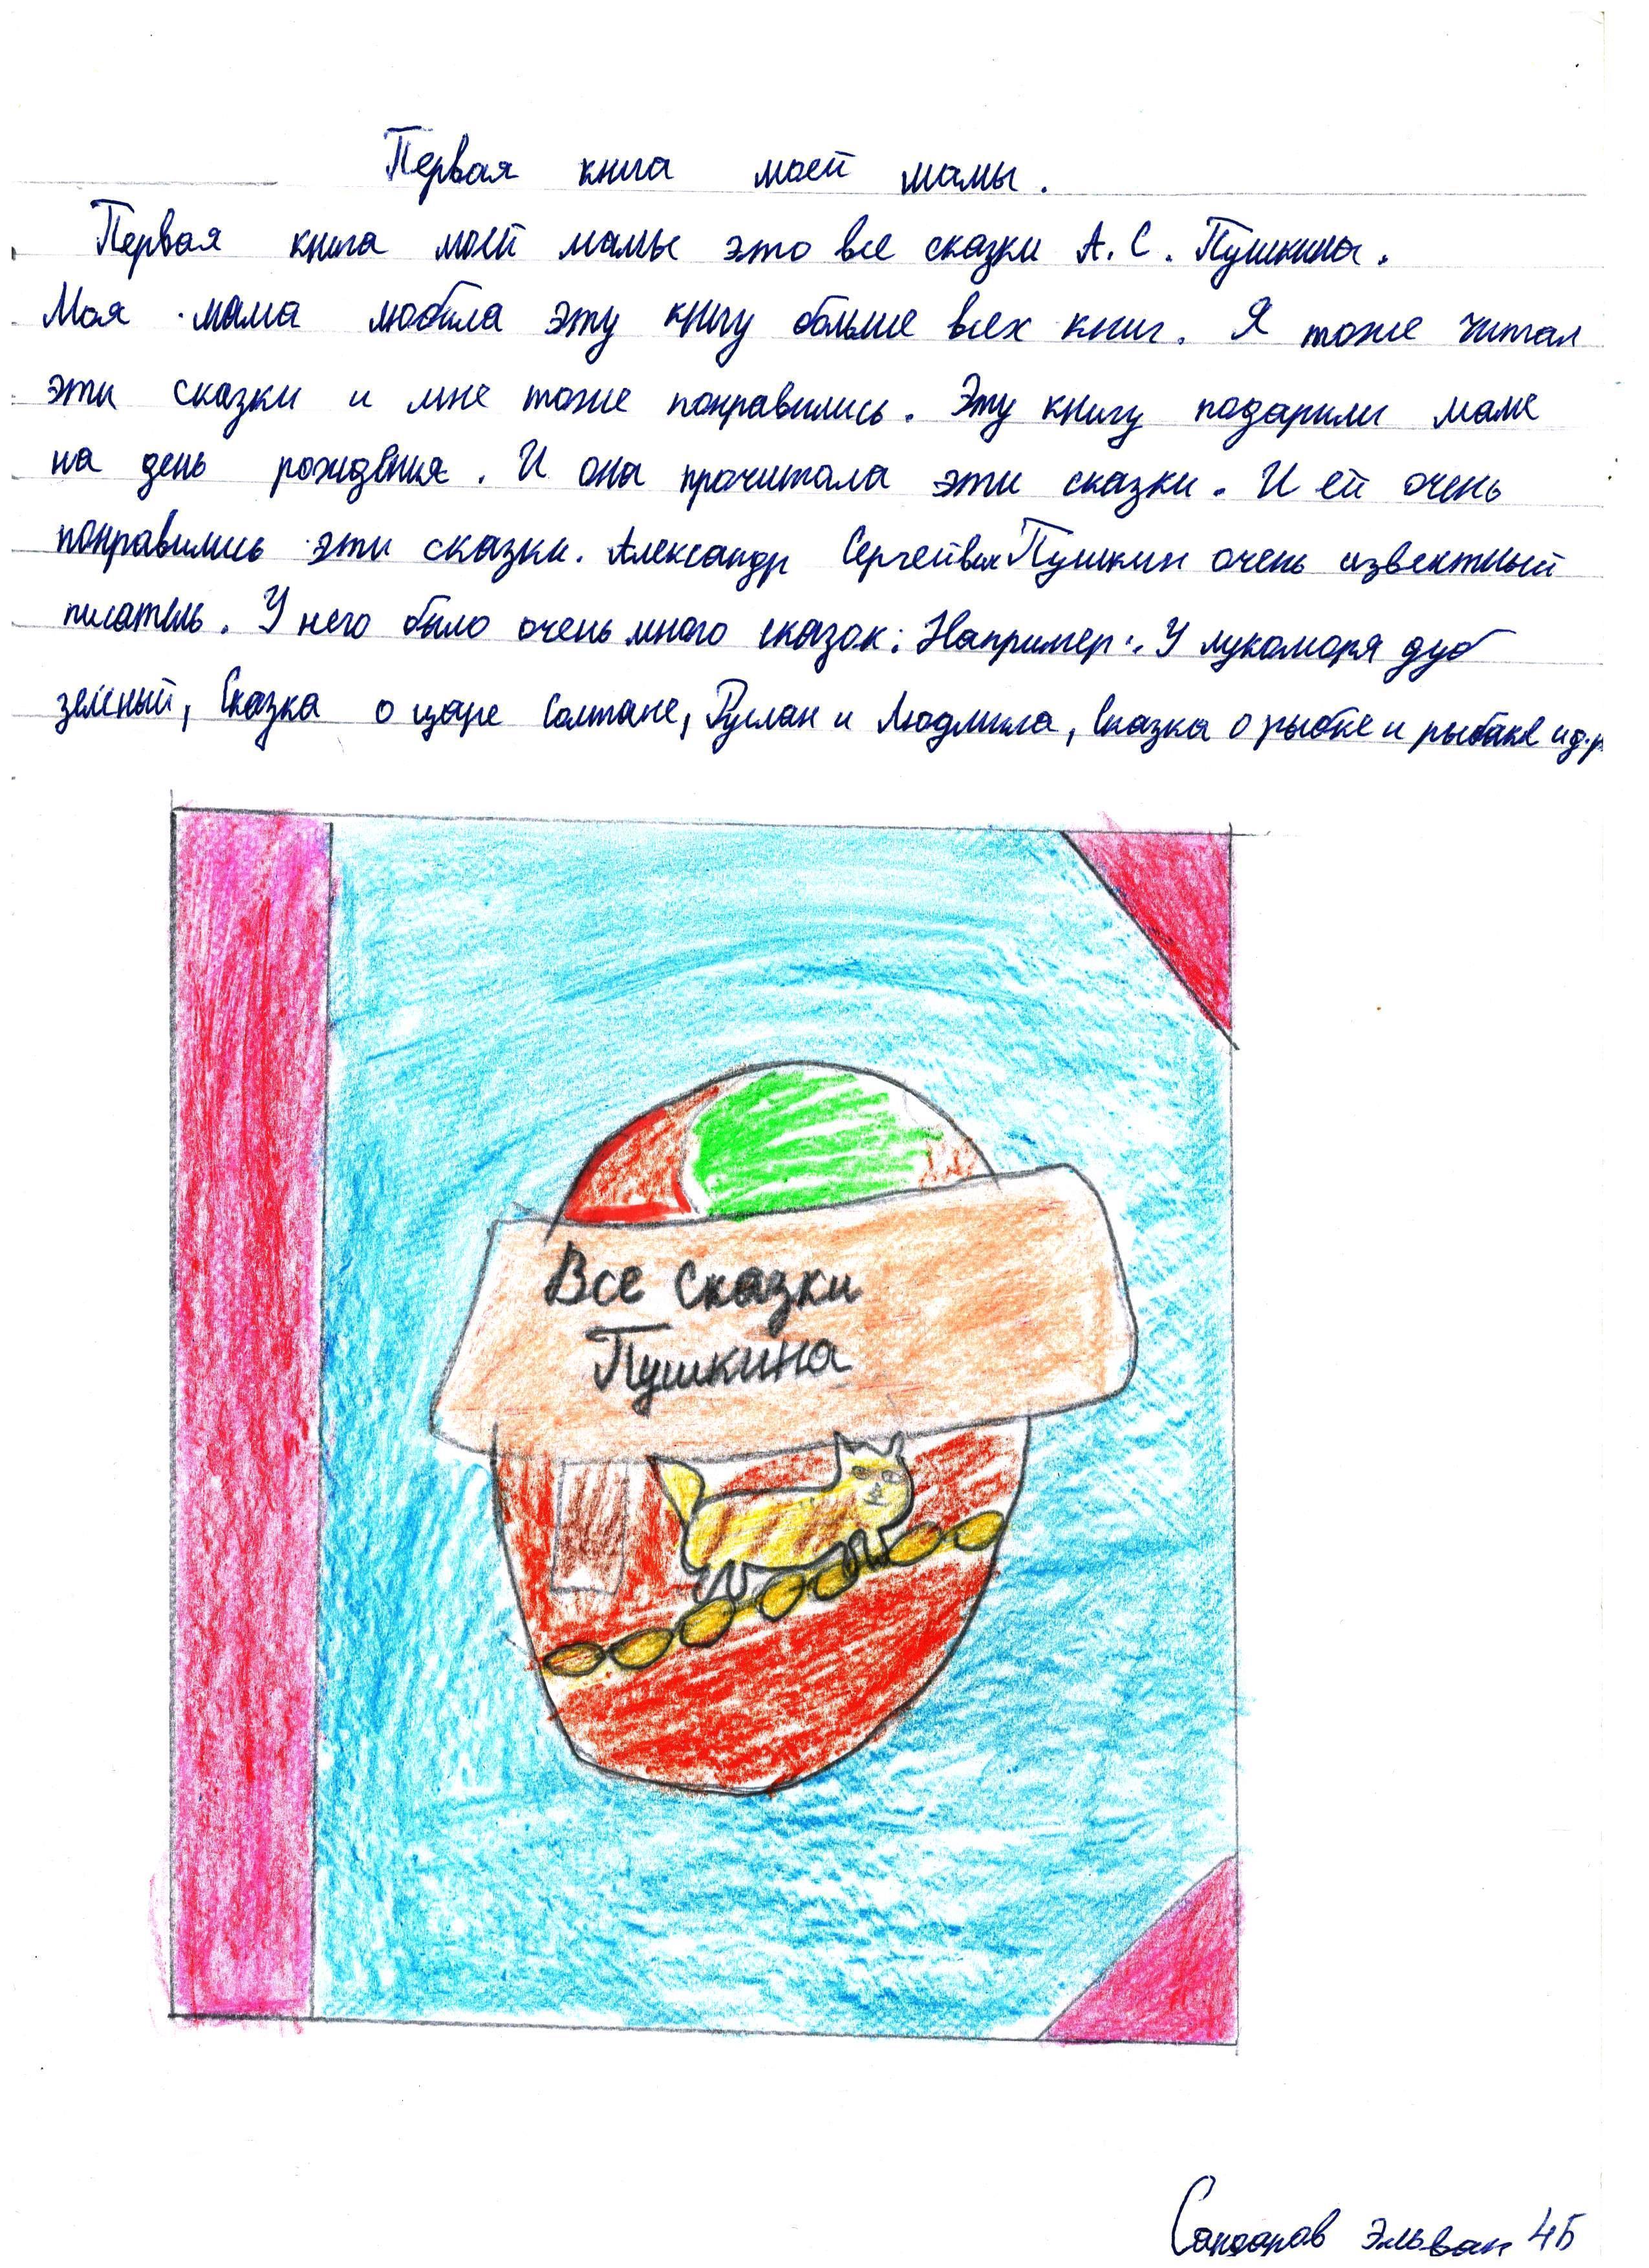 Первая книга моей мамы.
Первая книга моей мамы это все сказки А. С. Пушкина.
Моя мама любила эту книгу больше всех книг. Я тоже читал
эти сказки и мне тоже понравились. Эту книгу подарили маме
на день рождения. И она прочитала эти сказки. И ей очень
понравились эти сказки. Александр Пушкин очень извектный
писатель. У него было очень много сказок. Например: У лукоморя дуб
зелёный, Сказка о царе Солтане, Руслан и Людмила, Сказка о рыбке и рыбаке и д.р
Все Сказки
Пушкина
Эльван 4Б